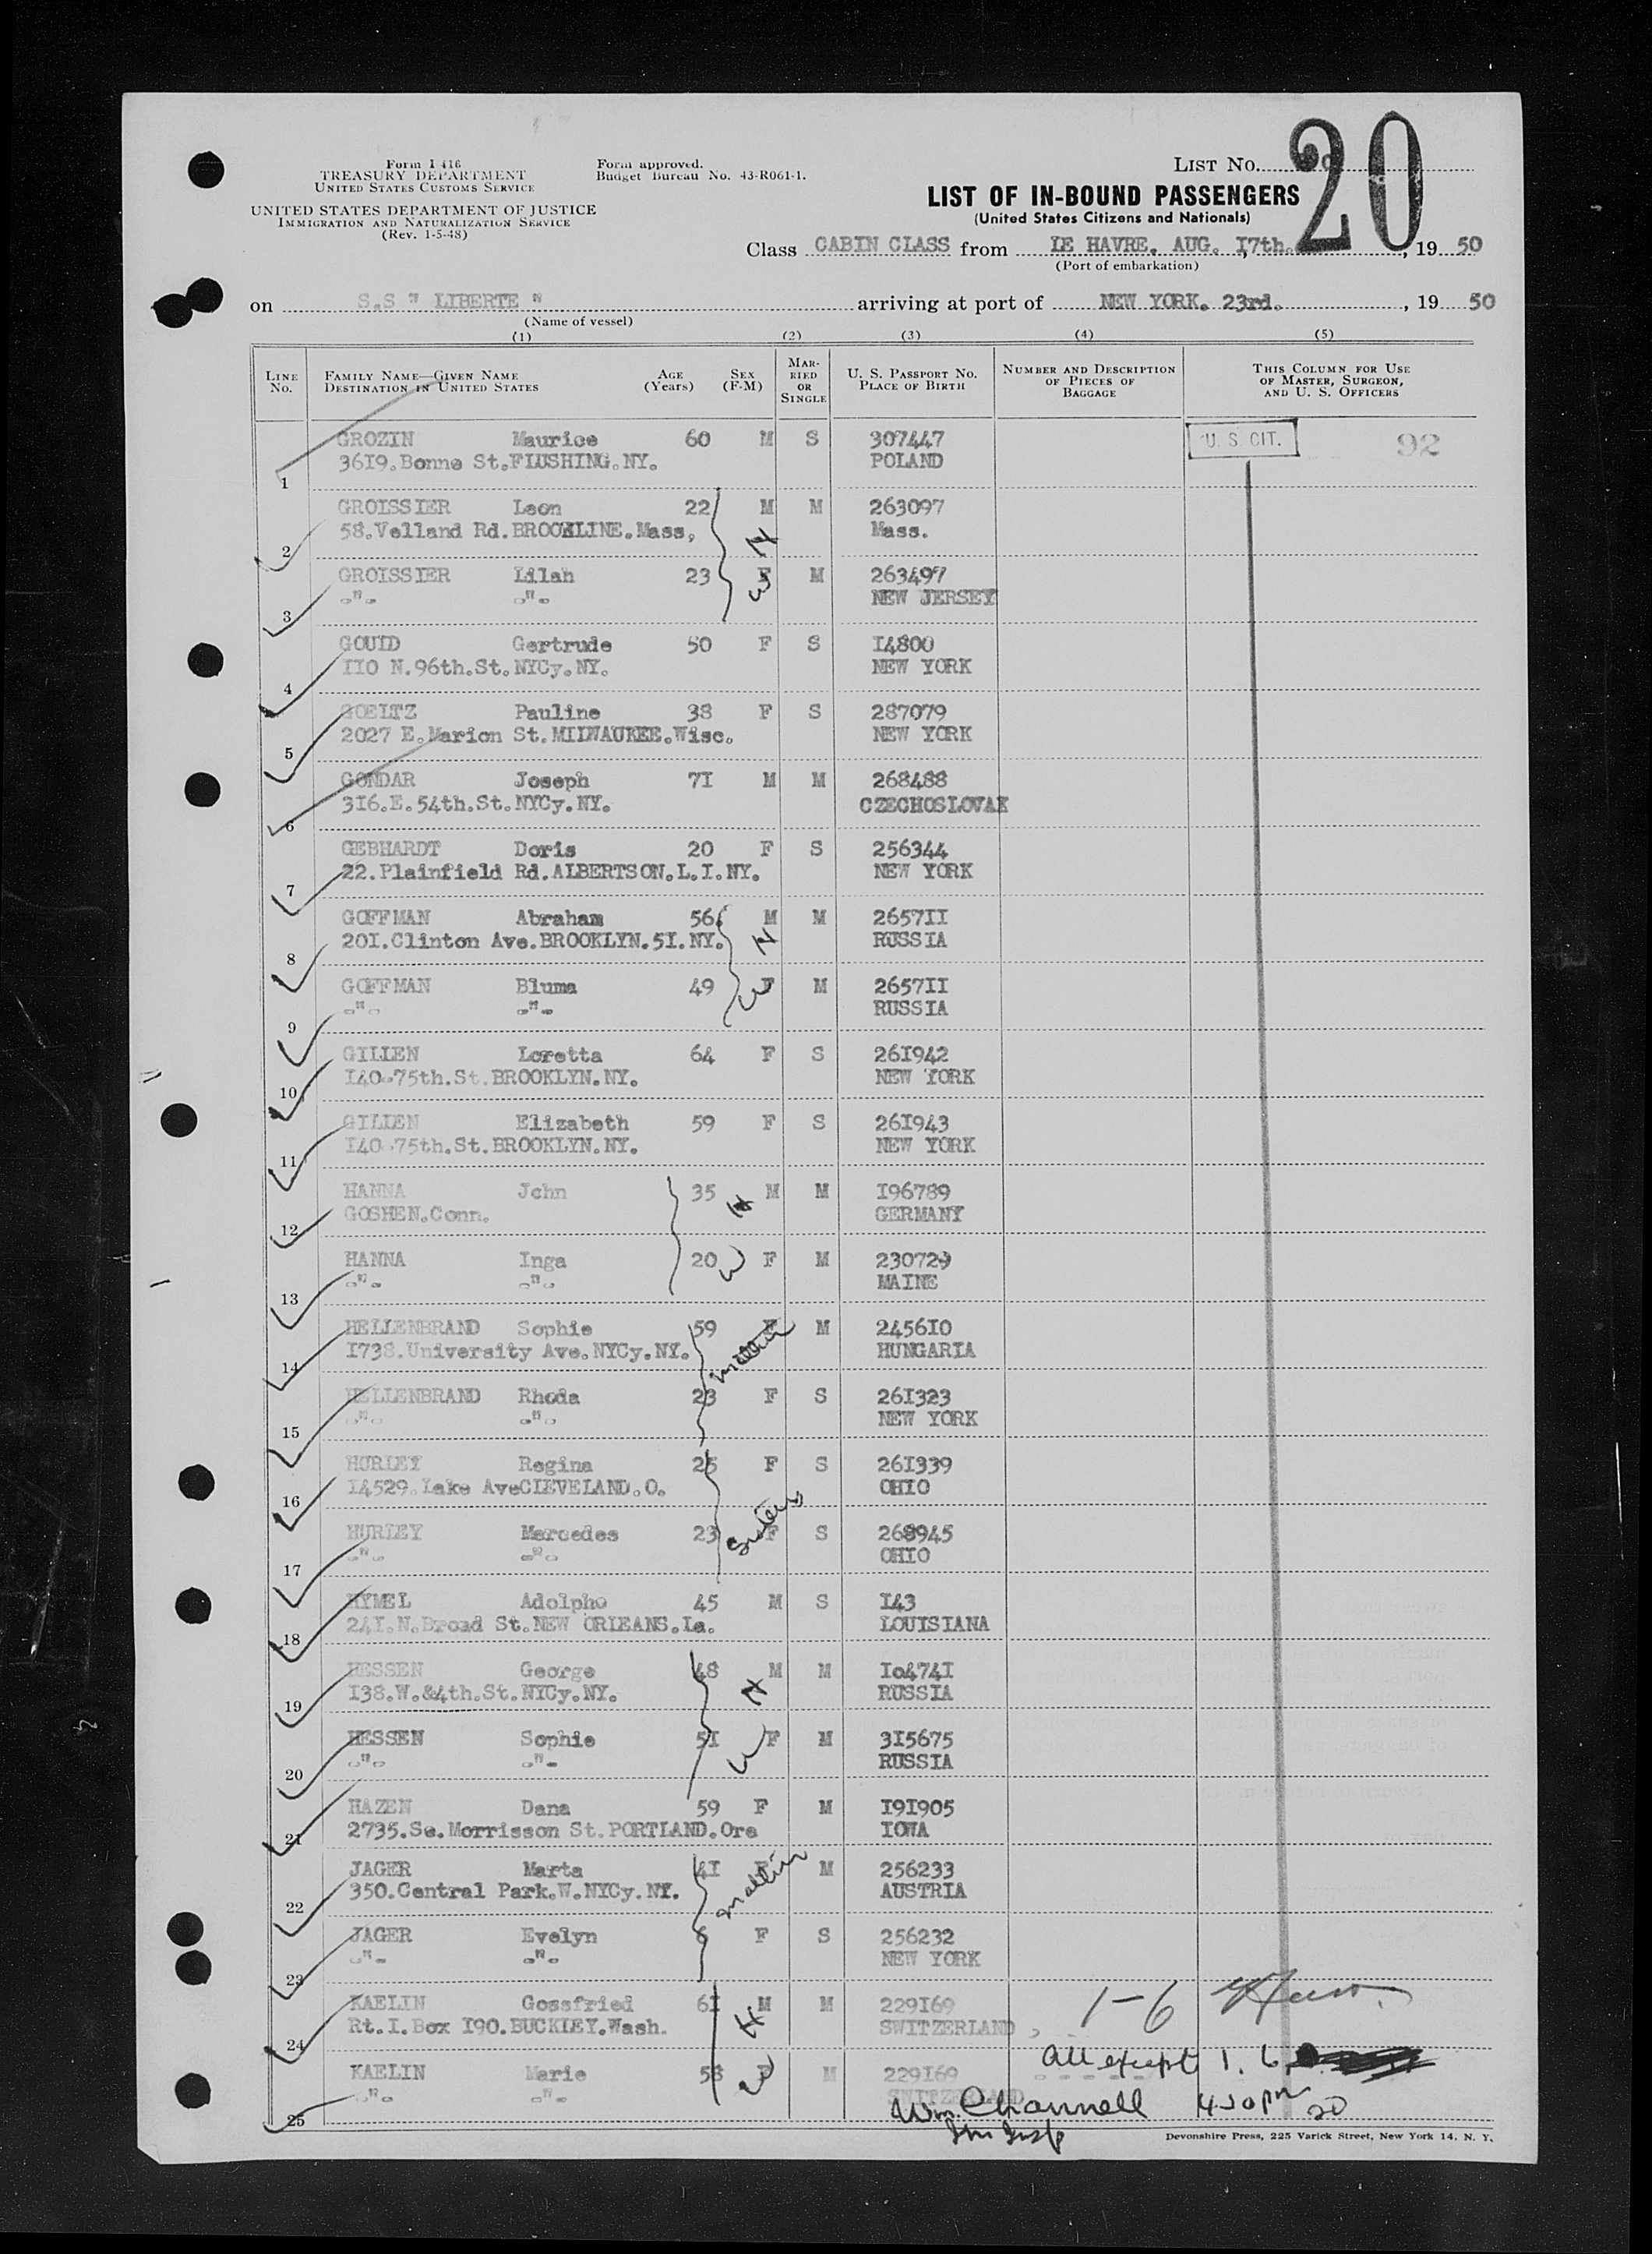 Form I 416
TREASURY DEPARTMENT
UNITED STATES CUSTOMS SERVICE
UNITED STATES DEPARTMENT OF JUSTICE
IMMIGRATION AND NATURALIZATION SERVICE
(Rev. 1-5-48)
Form approved.
Budget Bureau No. 43-R061-1.
LIST No. 20
LIST OF IN-BOUND PASSENGERS
(United States Citizens and Nationals)
Class CABIN CLASS from LE HAVRE. AUG. I7th. , 19 50
(Port of embarkation)
on S.S " LIBERTE " arriving at port of NEW YORK. 23rd. , 19 50
(Name of vessel)
(1) (2) (3) (4) (5)
LINE No. FAMILY NAME—GIVEN NAME DESTINATION IN UNITED STATES AGE (Years) SEX (F-M) MARRIED OR SINGLE U. S. PASSPORT No. PLACE OF BIRTH NUMBER AND DESCRIPTION OF PIECES OF BAGGAGE THIS COLUMN FOR USE OF MASTER, SURGEON, AND U. S. OFFICERS
GROZIN Maurice 60 M S 307447 U. S. CIT. 92
1 36I9.Bonne St.FLUSHING.NY. POLAND
GROISSIER Leon 22 M M 263097
2 58.Velland Rd.BROOKLINE.Mass, H Mass.
GROISSIER Lilah 23 F M 263497
3 -"- -"- W NEW JERSEY
GOULD Gertrude 50 F S I4800
4 IIO N.96th.St.NYCy.NY. NEW YORK
GOELTZ Pauline 38 F S 287079
5 2027 E.Marion St.MILWAUKEE.Wisc. NEW YORK
GONDAR Joseph 7I M M 268488
6 3I6.E.54th.St.NYCy.NY. CZECHOSLOVAK
GEBHARDT Doris 20 F S 256344
7 22.Plainfield Rd.ALBERTSON.L.I.NY. NEW YORK
GOFFMAN Abraham 56 M M 2657II
8 20I.Clinton Ave.BROOKLYN.5I.NY. H RUSSIA
GOFFMAN Bluma 49 W F M 2657II
9 -"- -"- RUSSIA
GILLEN Loretta 64 F S 26I942
10 I40.75th.St.BROOKLYN.NY. NEW YORK
GILLEN Elizabeth 59 F S 26I943
11 I40.75th.St.BROOKLYN.NY. NEW YORK
HANNA John 35 H M M I96789
12 GOSHEN.Conn. GERMANY
HANNA Inga 20 W F M 230729
13 -"- -"- MAINE
HELLENBRAND Sophie 59 F M 2456I0
14 I738.University Ave.NYCy.NY. mother HUNGARIA
HELLENBRAND Rhoda 23 F S 26I323
15 -"- -"- NEW YORK
HURLEY Regina 25 F S 26I339
16 I4529.Lake AveCLEVELAND.O. OHIO
HURLEY Mercedes 23 F S 268945
17 -"- -"- Sisters OHIO
HYMEL Adolpho 45 M S I43
18 24I.N.Broad St.NEW ORLEANS.La. LOUISIANA
HESSEN George 48 M M Io474I
19 I38.W.&4th.St.NYCy.NY. H RUSSIA
HESSEN Sophie 5I F M 3I5675
20 -"- -"- W RUSSIA
HAZEN Dana 59 F M I9I905
21 2735.Se.Morrisson St.PORTLAND.Ore IOWA
JAGER Marta 4I F M 256233
22 350.Central Park.W.NYCy.NY. mother AUSTRIA
JAGER Evelyn 6 F S 256232
23 -"- -"- NEW YORK
KAELIN Gossfried 6I M M 229I69 1-6
24 Rt.I.Box I90.BUCKLEY.Wash. H SWITZERLAND
KAELIN Marie 58 F M 229I69 all except 1. 6
25 -"- -"- W SWITZERLAND
Wm. Channell 430 pm 20
Imm Insp
Devonshire Press, 225 Varick Street, New York 14, N. Y.